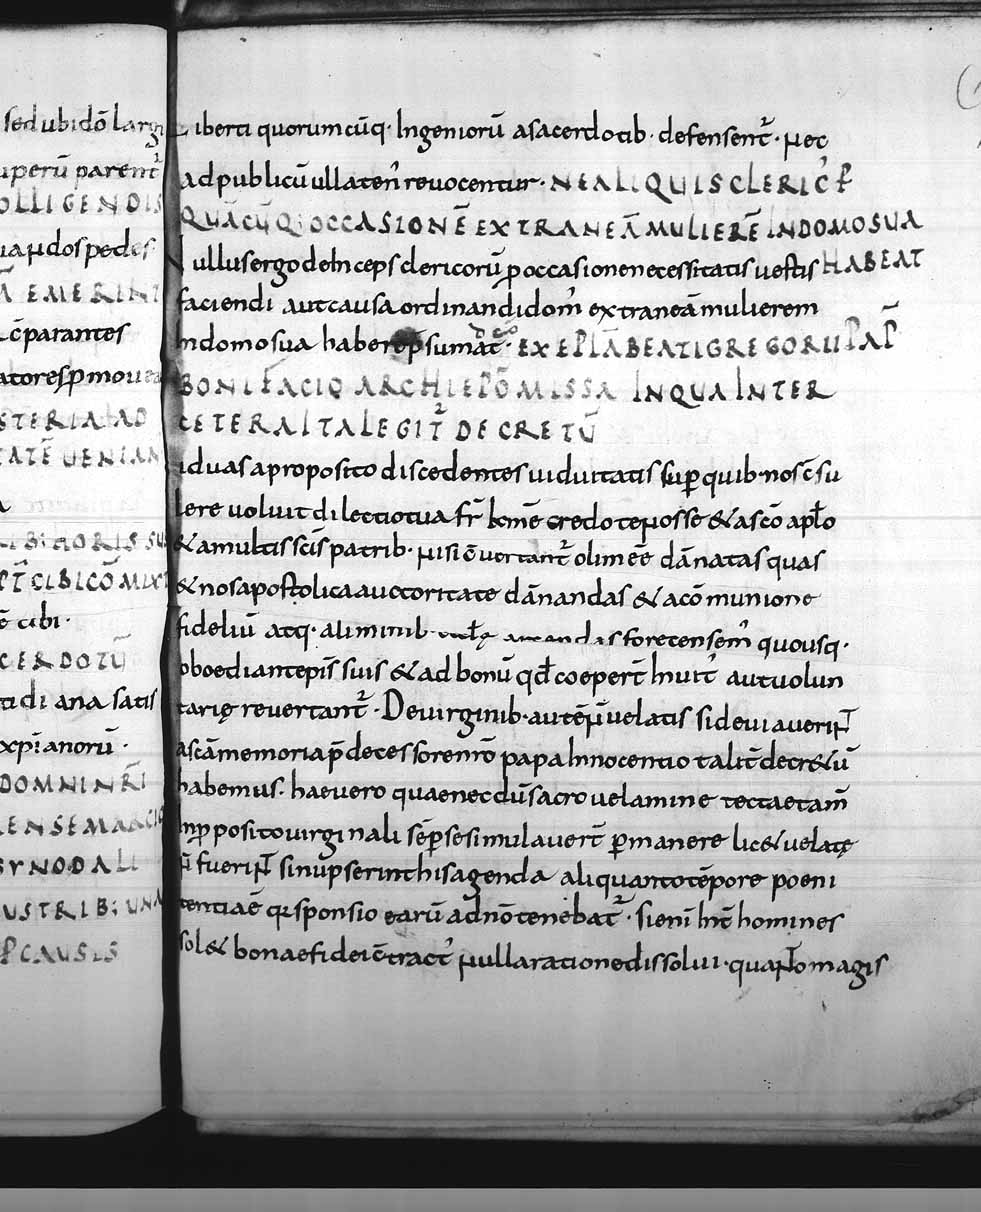 sed ubi dō larg
uperū parent̄
OLLIGENDIS
uandos pedes
Ā EMERINT
c̄parantes
atores ꝑmouea
STERIA AD
TATĒ UENIAN
LIB: HORIS SU
PT̄ CIBI CŌMIXT
ē cibi ·
CERDOTŪ
ti diana satis
xp̄ianorū ·
DOMNI NR̄I
ENSE MARCIO
SYNODALI
USTRIB; UNA
P̱ CAUSIS
Liberti quorumcūq· Ingeniorū a sacerdotib· defensent̄· Nec
ad publicū ullaten' reuocentur· NE ALIQUIS CLERIC' P̱
QUĀCŪQ; OCCASIONĒ EXTRANEĀ MULIERĒ IN DOMO SUA
Nullus ergo deInceps clericorū ꝑ occasione necessitatis uestis HABEAT
faciendi aut causa ordinandi dom' extraneā mulierem
In domo sua habere p̄sumat̄· EX EPLĀ BEATI GREGORII PAP̄
BONIFACIO ARCHIEPŌ MISSA IN QUA INTER
CETERA ITA LEGIT̄ DECRETŪ
iduas a proposito discedentes uiduitatis suꝑ quib· nos c̄su
lere uoluit dilectio tua fr̄ kmē credo te Nosse & a scō apl̄o
& a multis scīs patrib· Nisi c̄uertant̄ olim eē dānatas quas
& nos apostolica auctoritate dānandas & a cōmunione
fideliū atq· a liminib· eccl̄ę arcendas fore censem' quousq·
oboediant ep̄is suis & ad bonū qd̄ coepert̄ Inuit' aut uolun
tarię reuertant̄· De uirginib· autē N̄ uelatis si deuiauerint
a scā memoria p̄decessore nr̄o papa Innocentio talit̄ decr&ū
habemus· hae uero quae necdū sacro uelamine tectae tam̄
In ꝓposito uirginali sēꝑ se simulauert̄ ꝑmanere lic& uelatę
N̄ fuerint si nupserint his agenda aliquanto tēpore poeni
tentia ē q̄ sponsio earū a dn̄o tenebat̄· si eni Int̄ homines
sol& bonae fidei c̄tract' Nulla ratione dissolui· quanto magis